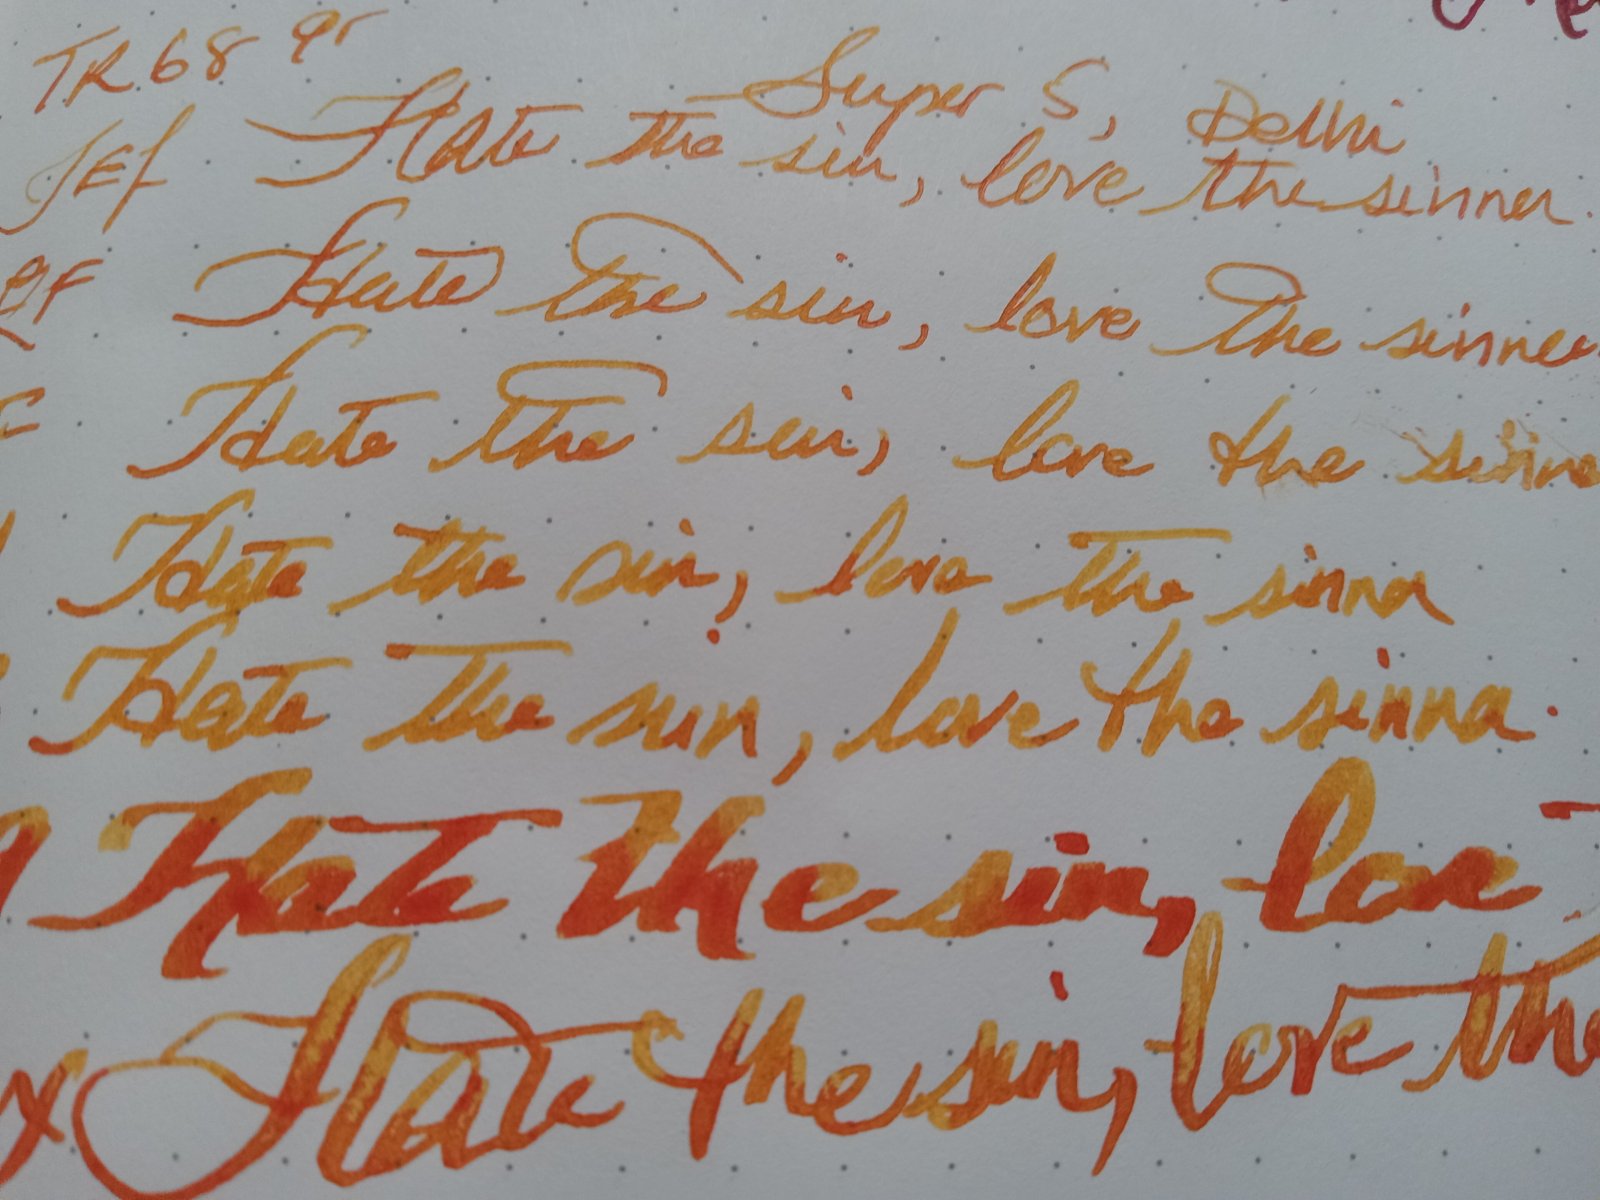 TR 68 gr
Super 5, Delhi
JEF Hate the sin, love the sinner.
Hate the sin, love the sinner
Hate the sin, love the sinne
Hate the sin, love the sinner
Hate the sin, love the sinner.
Hate the sin, love
Hate the sin, love the